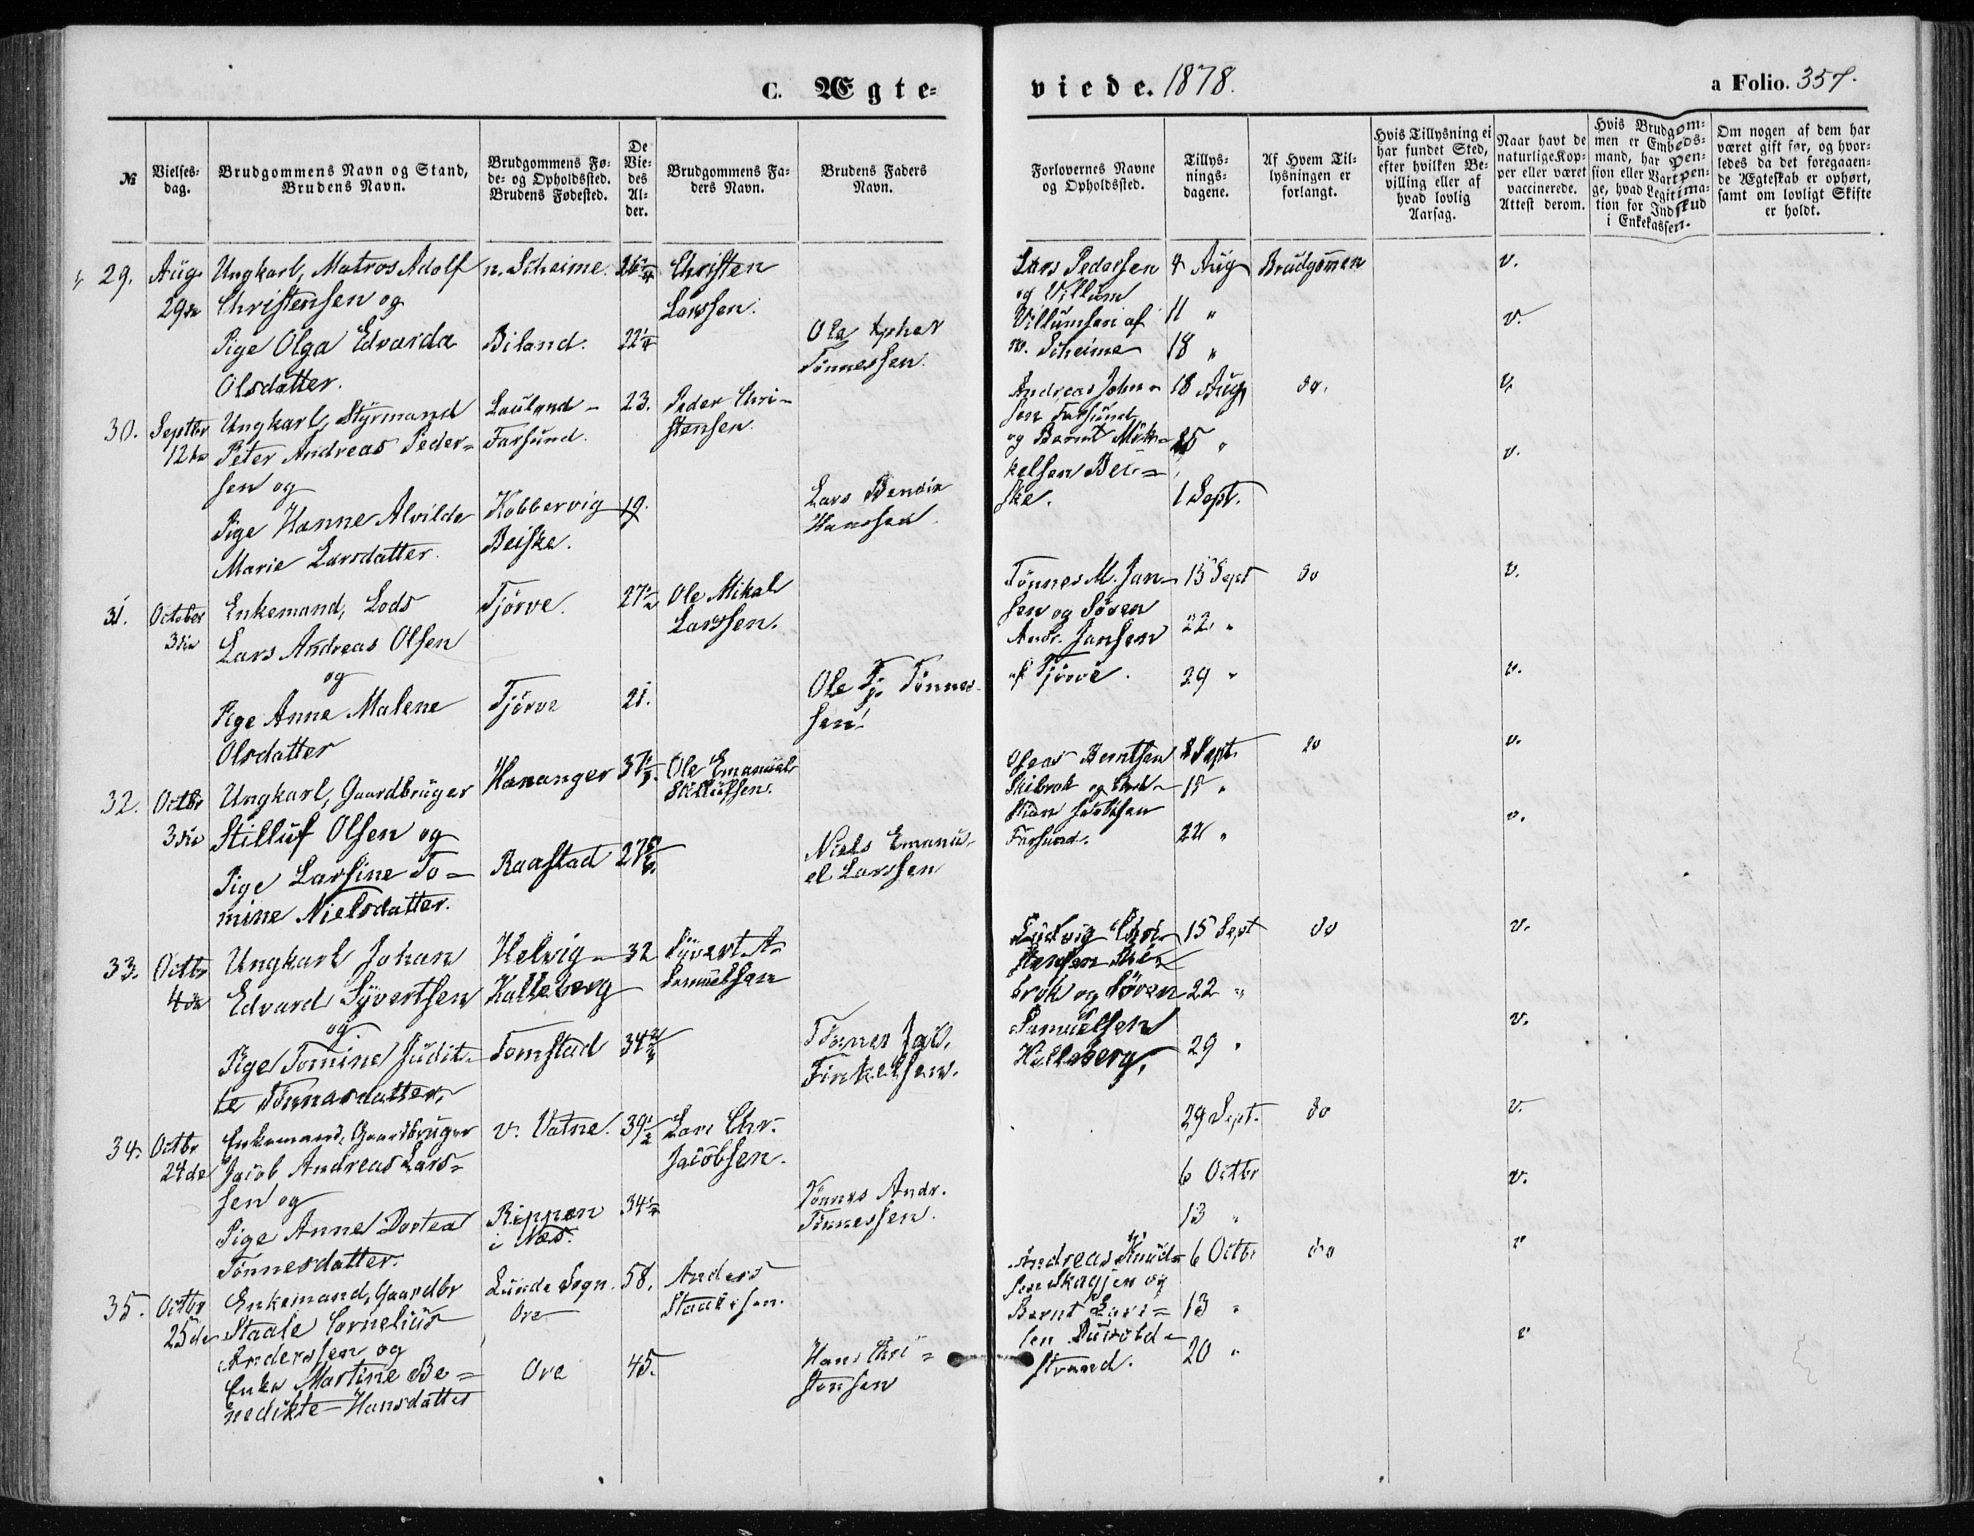 C. Ægte=
viede. 1878.
a Folio. 357.
№
Vielses-
dag.
Brudgommens Navn og Stand,
Brudens Navn.
Brudgommens Fø-
de- og Opholdssted.
Brudens Fødested.
De
Vie-
des
Al-
der.
Brudgommens Fa-
ders Navn.
Brudens Faders
Navn.
Forlovernes Navne
og Opholdssted.
Tillys-
nings-
dagene.
Af Hvem Til-
lysningen er
forlangt.
Hvis Tillysning ei
har fundet Sted,
efter hvilken Be-
villing eller af
hvad lovlig
Aarsag.
Naar havt de
naturlige Kop-
per eller været
vaccinerede.
Attest derom.
Hvis Brudgom-
men er Embeds-
mand, har Pen-
sion eller Vartpen-
ge, hvad Legitima-
tion for Indskud
i Enkekassen.
Om nogen af dem har
været gift før, og hvor-
ledes da det foregaaen-
de Ægteskab er ophørt,
samt om lovligt Skifte
er holdt.
29. Aug. 29de
Ungkarl, Matros Adolf
Christensen og
Pige Olga Edvarda
Olsdatter.
n. Scheime.
Biland.
26 1/4
22 1/4
Christen
Larssen.
Ole
Tønnessen.
Lars Pedersen
og Villum
Villumsen af
n. Scheime
4 Aug
11 "
18 "
Brudgommen
v.
v.
30. Septbr 12te
Ungkarl, Styrmand
Peter Andreas Peder-
sen og
Pige Hanne Alvilde
Marie Larsdatter.
Lauland -
Farsund.
Kobbervig
Beiske.
23.
19.
Peder Chri-
stensen.
Lars Bendix
Hanssen.
Andreas John-
sen Farsund
og Bernt Mik-
kelsen Bei-
ske.
18 Aug
25 "
1 Sept.
do.
v.
v.
31. October 3die
Enkemand, Lods
Lars Andreas Olsen
og
Pige Anne Malene
Olsdatter
Tjørve.
Tjørve
27 1/2
21.
Ole Mikal
Larssen.
Ole Tj. Tønnes-
sen.
Tønnes M. Jan-
sen og Søren
Andr. Jansen
af Tjørve.
15 Sept
22 "
29 "
do
v.
v.
32. Octbr 3die
Ungkarl, Gaardbruger
Stilluf Olsen og
Pige Larsine To-
mine Nielsdatter.
Hananger
Raastad
Ole Emanuel
Stillufsen.
Niels Emanu-
el Larssen
Berntsen
Skibrok og
Farsund.
8 Sept.
15 "
22 "
do
v.
v.
33. Octbr 4de
Ungkarl Johan
Edvard Syvertsen
og
Pige Tomine Judit-
te Tønnesdatter.
Helvig -
Kalleberg
Tomstad
32
Syvert A.
Samuelsen
Tønnes Jac.
Finkelsen.
Ludvig Chri-
stensen Ski-
brok og Søren
Samuelsen
Kalleberg.
15 Sept
22 "
29 "
do
v.
v.
34. Octbr 24de
Enkemand, Gaardbruger
Jacob Andreas Lars-
sen og
Pige Anne Dortea
Tønnesdatter.
v. Vatne.
Rippen
i Næs.
39 1/2
34 1/2
Lars Chr.
Jacobsen.
Tønnes Andr.
Tønnessen.
29 Sept.
6 Octbr
13 "
do
v.
v.
35. Octbr 25de
Enkemand, Gaardbr
Staale Cornelius
Anderssen og
Enke Martine Be-
nedikte Hansdatter
Lunde Sogn.
Ore
Ore
58.
45.
Anders
Staalesen.
Hans Chri-
stensen
Andreas Knud-
sen Skagjen og
Bernt Lars-
sen
strand.
6 Octbr
13 "
20 "
do
v
v